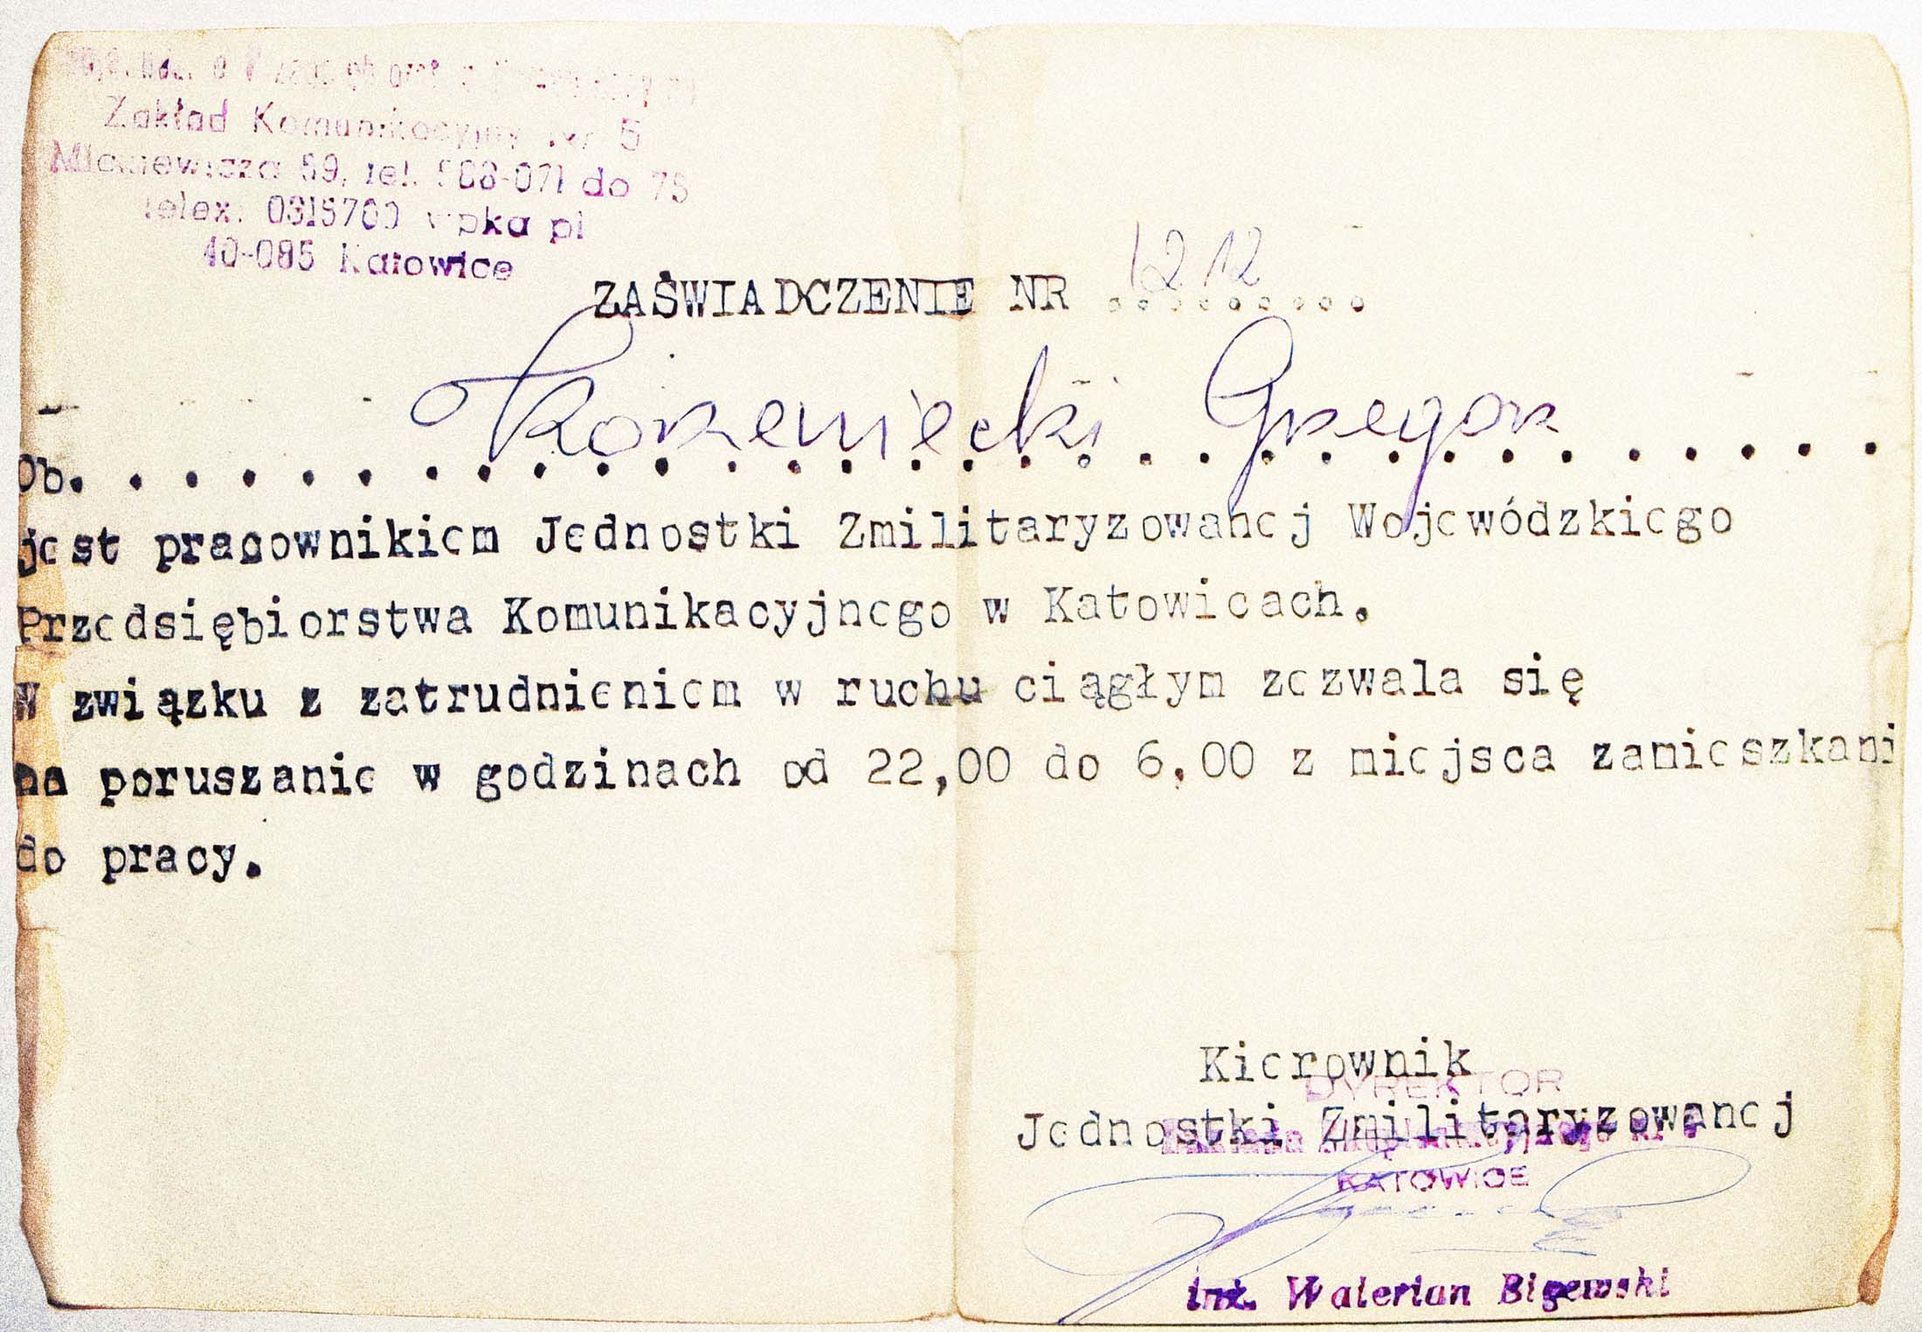 Zakład Komunikacyjny Nr 5
Mickiewicza 59, tel. 588-071 do 75
telex: 0315700 wpka pl
40-085 Katowice
ZAŚWIADCZENIE NR 1212
Ob. Korzeniecki Grzegorz
jest pracownikiem Jednostki Zmilitaryzowanej Wojewódzkiego
Przedsiębiorstwa Komunikacyjnego w Katowicach.
W związku z zatrudnieniem w ruchu ciągłym zezwala się
na poruszanie w godzinach od 22,00 do 6,00 z miejsca zamieszkani
do pracy.
Kierownik
DYREKTOR
Jednostki Zmilitaryzowanej
KATOWICE
inż. Walerian Bigewski